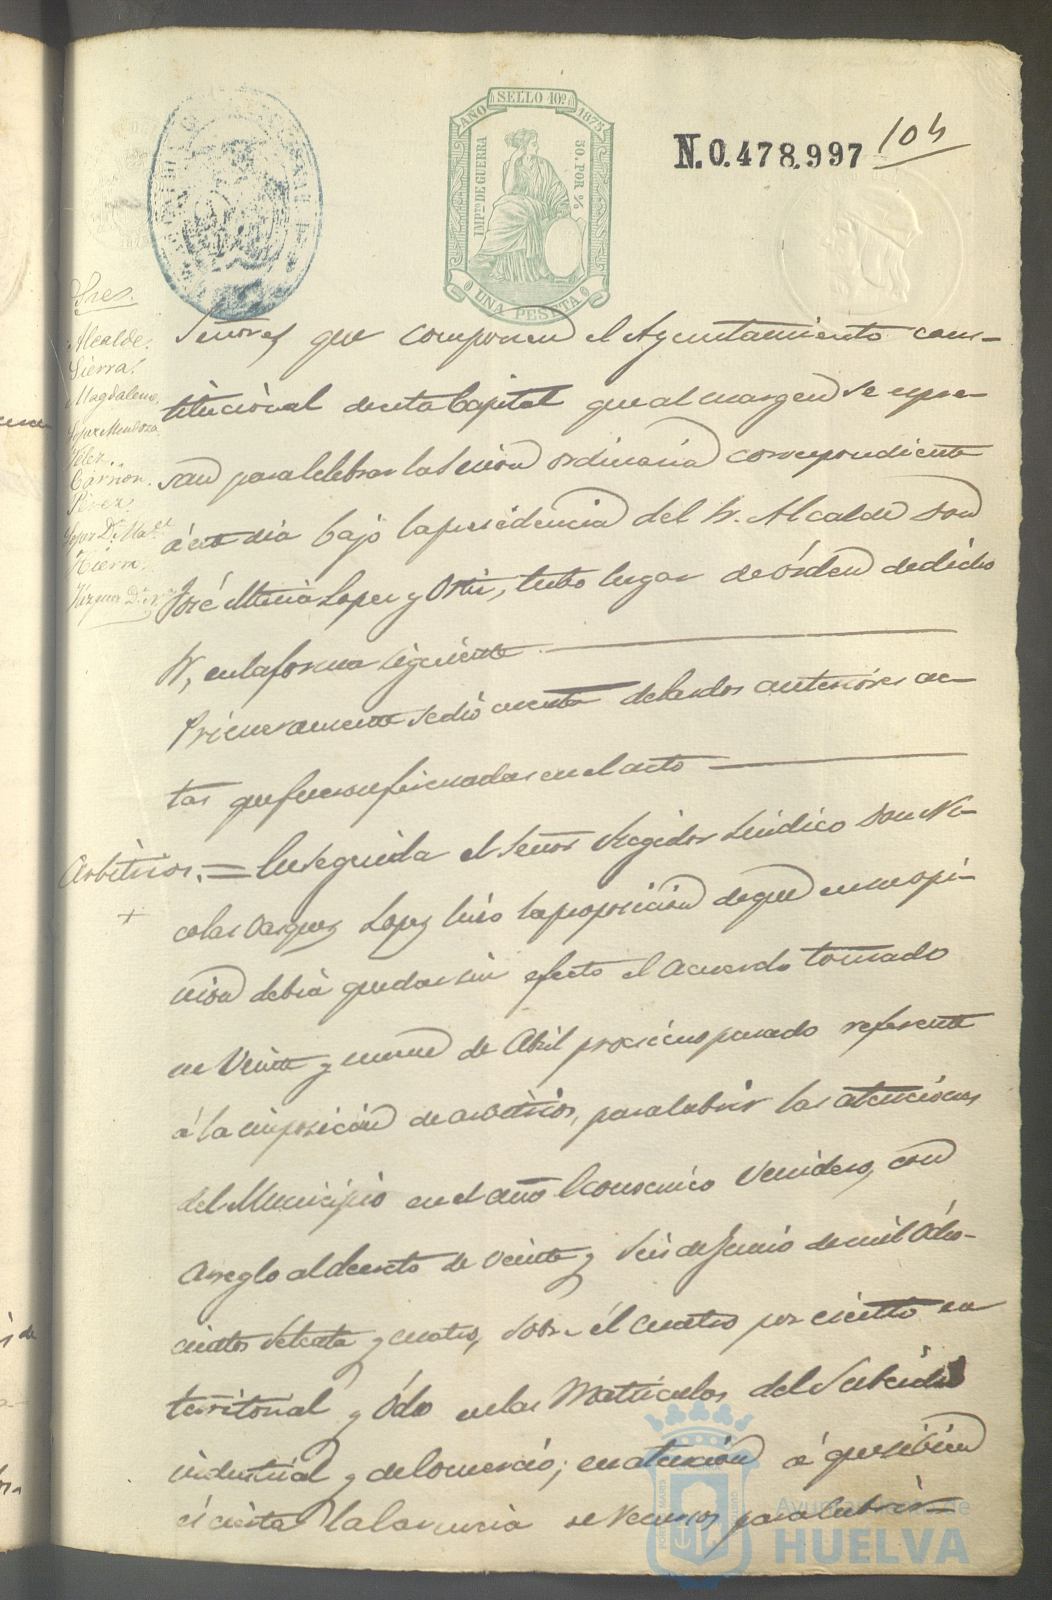 AÑO SELLO 10º 1875
IMPTO DE GUERRA
50 POR %
UNA PESETA
N.0.478.997
104
Sres.
Alcalde.
Sierra.
Magdaleno.
Lopez Mendoza.
Velez.
Carrion.
Perez.
Señores que componen el Ayuntamiento cons-
titucional de esta Capital que al margen se espre-
san para celebrar la Sesion ordinaria correspondiente
á este dia bajo la presidencia del Sr. Alcalde Don
José Maria Lopez y Ortiz, tubo lugar de órden de dicho
Sr, en la forma siguiente
Primeramente se dió cuenta de las dos anteriores ac-
tas que fueron firmadas en el acto
Arbitrios. = Enseguida el Señor Regidor Sindico Don Ni-
colas Vazquez Lopez hizo la proposicion de que en su opi-
nion debia quedar sin efecto el Acuerdo tomado
en Veinte y nueve de Abril procsimo pasado referente
á la imposicion de arbitrios, para cubrir las atenciones
del Municipio en el año Economico Venidero, con
arreglo al decreto de veinte y Seis de Junio de mil Ocho-
cientos Setenta y cuatro, sobre el cuatro por ciento en
territorial y Ocho en las Matriculas del Subsidio
industrial y de Comercio; en atencion á que si bien
es cierta la carencia de recursos para cubrir
Ayuntamiento de
HUELVA